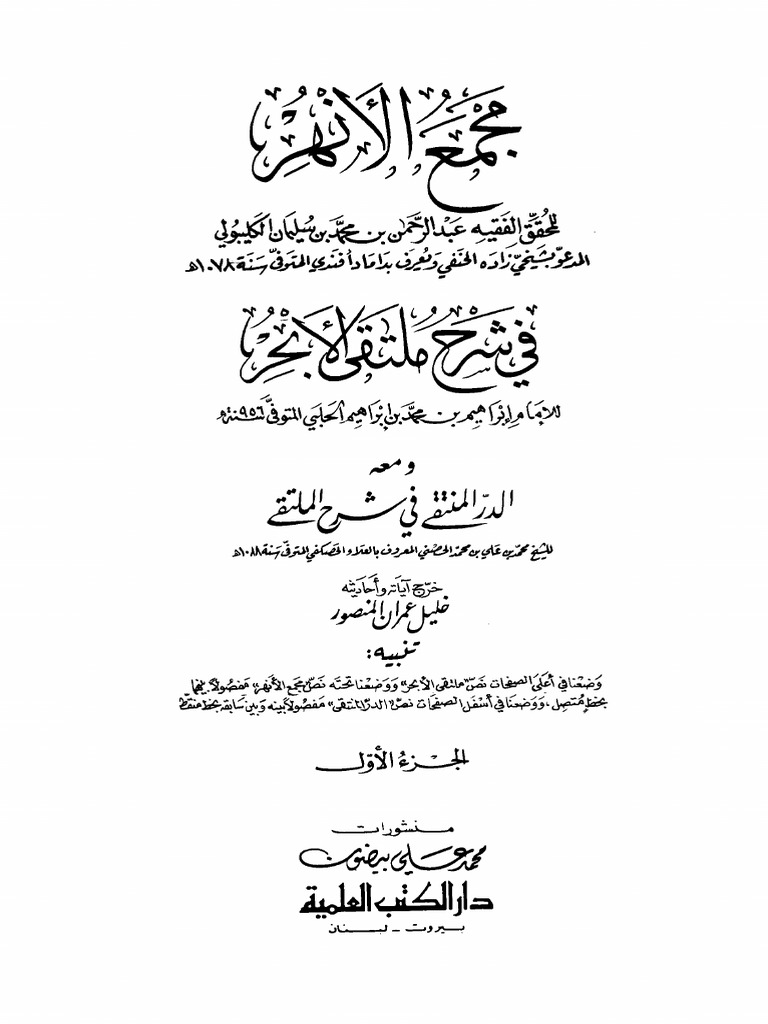 مَجْمَعُ الأَنْهُرِ
للمُحقِّق الفَقيه عَبْد الرَّحمٰن بن محمَّد بن سُليمَان الكليبُولي
المدعوّ بشيخيّ زاده الحنَفي ويُعرف بدَامَاد أفندي المتوفّى سَنَة ١٠٧٨هـ
في شَرْحِ مُلتَقَى الأَبْحُرِ
للإمَام إبْرَاهيم بن محمَّد بن إبْرَاهيم الحَلبي المتوفّى سَنة ٩٥٦هـ
ومعه
الدرّ المنتقى في شرح الملتقى
للشيخ محمّد بن علي بن محمّد الحصني المعروف بالعلاء الحصكفي المتوفّى سَنة ١٠٨٨هـ
خرّج آيَاته وأحَاديثه
خليل عمران المنصور
تنبيه:
وَضعنا في أعلى الصفحَات نصّ "ملتقى الأبحر" ووَضعنا تحته نصّ "مجمع الأنهر" مَفصُولاً بينهما
بخطٍ مُتصِل، ووَضعنا في أسْفل الصفحَات نصّ "الدر المنتقى" مَفصُولاً بينه وبين سَابقه بخط منقّط
الجزءُ الأوّل
منشورات
محمد علي بيضون
دار الكتب العلمية
بيروت - لبنان